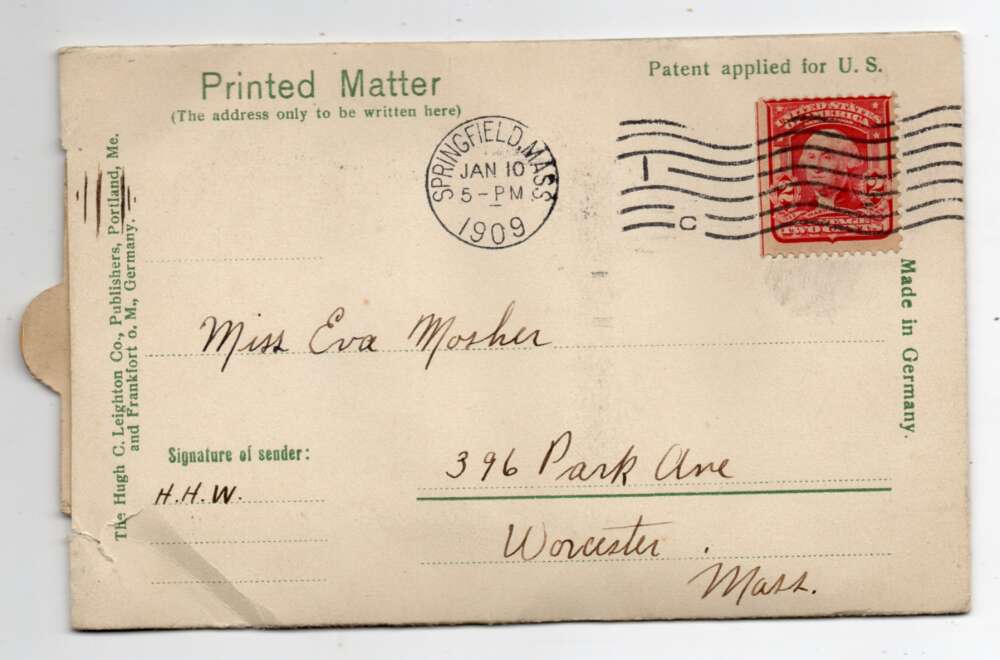 Printed Matter
(The address only to be written here)
Patent applied for U. S.
SPRINGFIELD, MASS.
JAN 10
5-PM
1909
1
C
UNITED STATES
OF AMERICA
2 2
TWO CENTS
The Hugh C. Leighton Co., Publishers, Portland, Me.
and Frankfort o. M., Germany.
Made in Germany.
Miss Eva Mosher
Signature of sender:
H.H.W.
396 Park Ave
Worcester.
Mass.